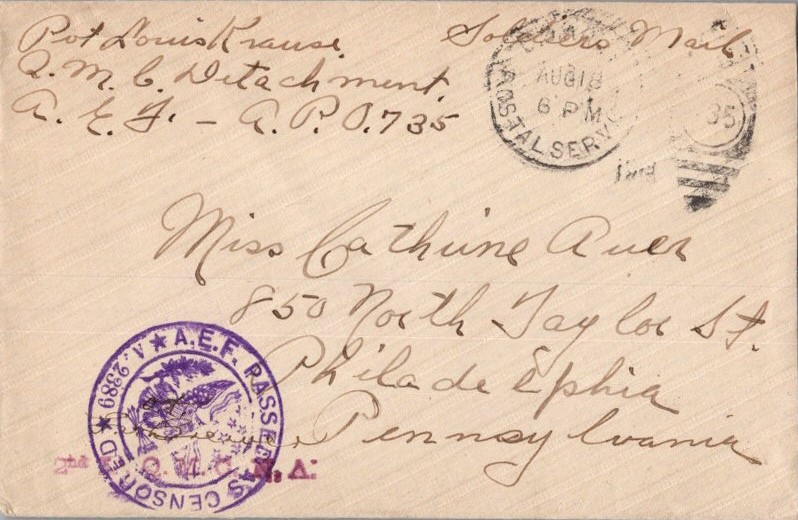 Pvt Louis Krause.
Soldiers Mail
Q. M. C. Detachment.
A. E. F. - A. P. O. 735
POSTAL SERV
AUG 18
6 PM
Miss Cathrine Auer
850 North Taylor St.
Philadelphia
Pennsylvania
A.E.F. PASSED AS CENSORED
A.2389
2nd Q. M. C. N. A.